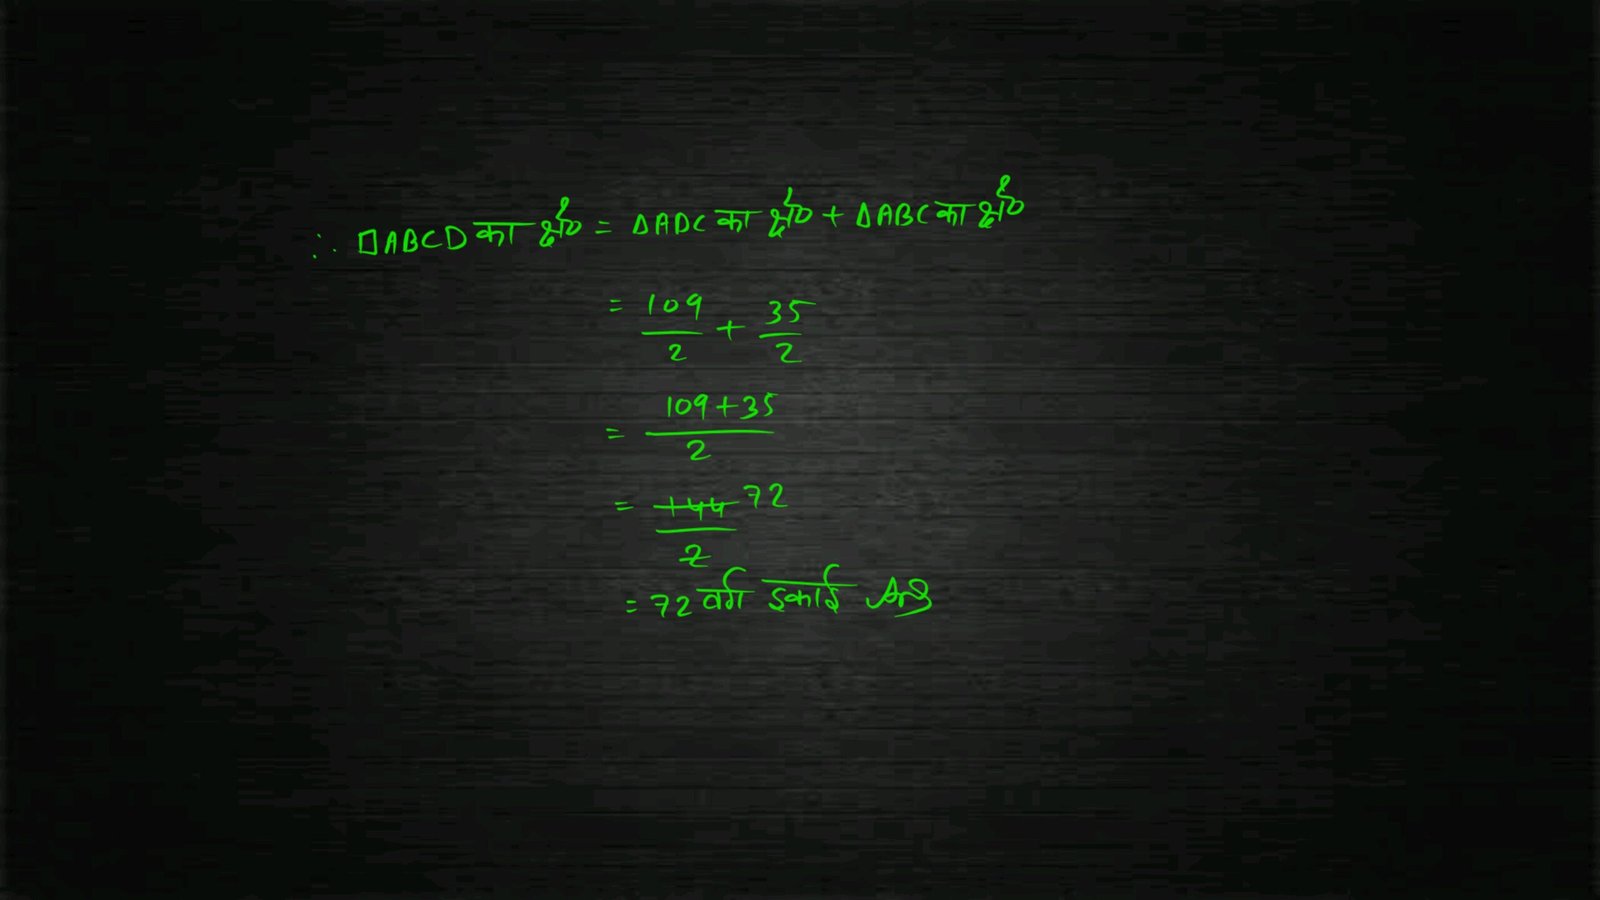 ∴ □ABCD का क्षे० = ΔADC का क्षे० + ΔABC का क्षे०
= 109/2 + 35/2
= 109+35/2
= 144/2 72
= 72 वर्ग इकाई Ans